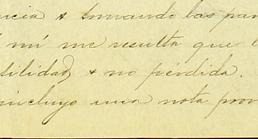 ncia & tomando las par
mí me resulta que l
tilidad & no pérdida.
incluyo una nota prov